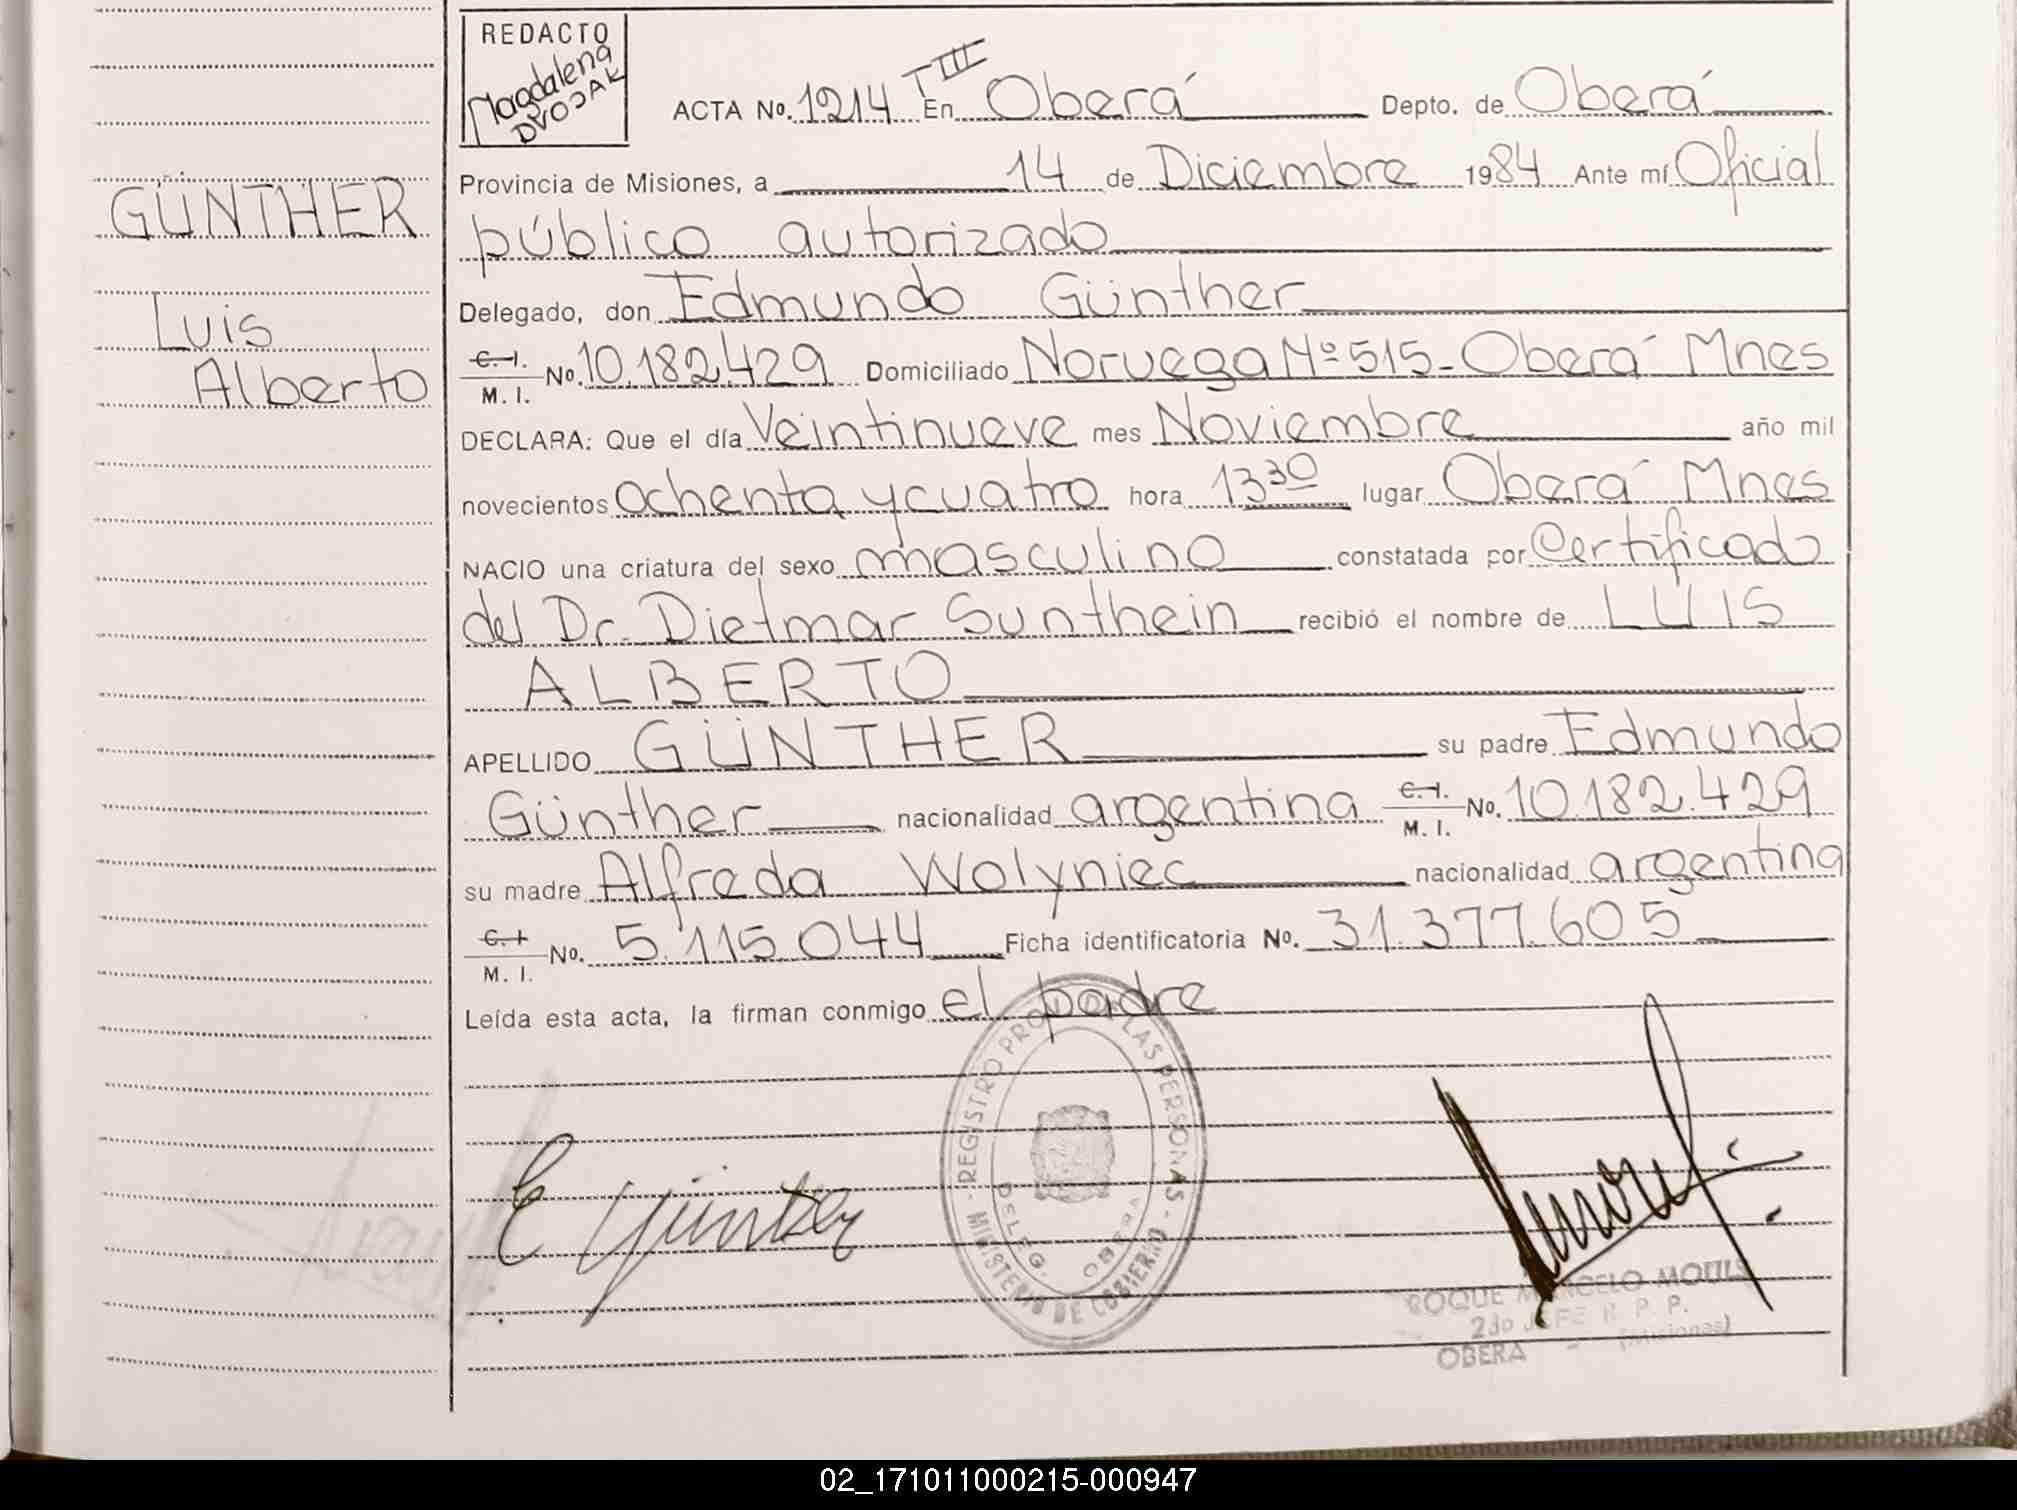 REDACTO
Magdalena
DVOJAK
ACTA No. 1214 TIII En Oberá Depto. de Oberá
Provincia de Misiones, a 14 de Diciembre 1984 Ante mí Oficial
público autorizado
GÜNTHER
Luis
Alberto
Delegado, don Edmundo Günther
C. I. M. I. No. 10.182.429 Domiciliado Noruega Nº 515 - Oberá Mnes
DECLARA: Que el día Veintinueve mes Noviembre año mil
novecientos ochenta y cuatro hora 13 30 lugar Oberá Mnes
NACIO una criatura del sexo masculino constatada por Certificado
del Dr. Dietmar Sunthein recibió el nombre de LUIS
ALBERTO
APELLIDO GÜNTHER su padre Edmundo
Günther nacionalidad argentina C. I. M. I. No. 10.182.429
su madre Alfreda Wolyniec nacionalidad argentina
C. I M. I. No. 5.115.044 Ficha identificatoria No. 31.377.605
Leída esta acta, la firman conmigo el padre
REGISTRO PROV. DE LAS PERSONAS
MINISTERIO DE GOBIERNO
DELEG. OBERA
E Günther
ROQUE MARCELO
2do JEFE R. P. P.
OBERA - (Misiones)
02_171011000215-000947